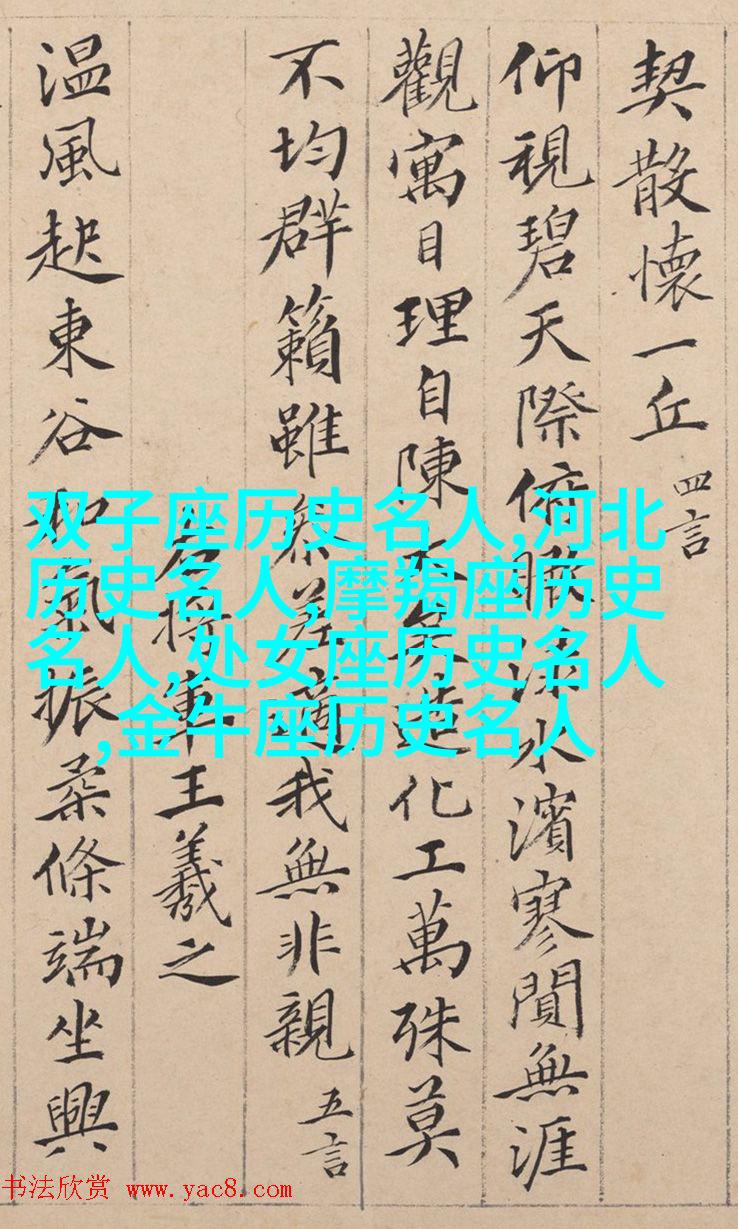 契散懷一丘 四言
仰視碧天際俯瞰淥水濱寥閴無涯
觀寓目理自陳大矣造化工萬殊莫
不均群籟雖參差適我無非親 五言
右將軍王羲之
温風起東谷和氣振柔條端坐興
双子座历史名人,河北
历史名人,摩羯座历史
名人,处女座历史名人
,金牛座历史名人
书法欣赏 www.yac8.com